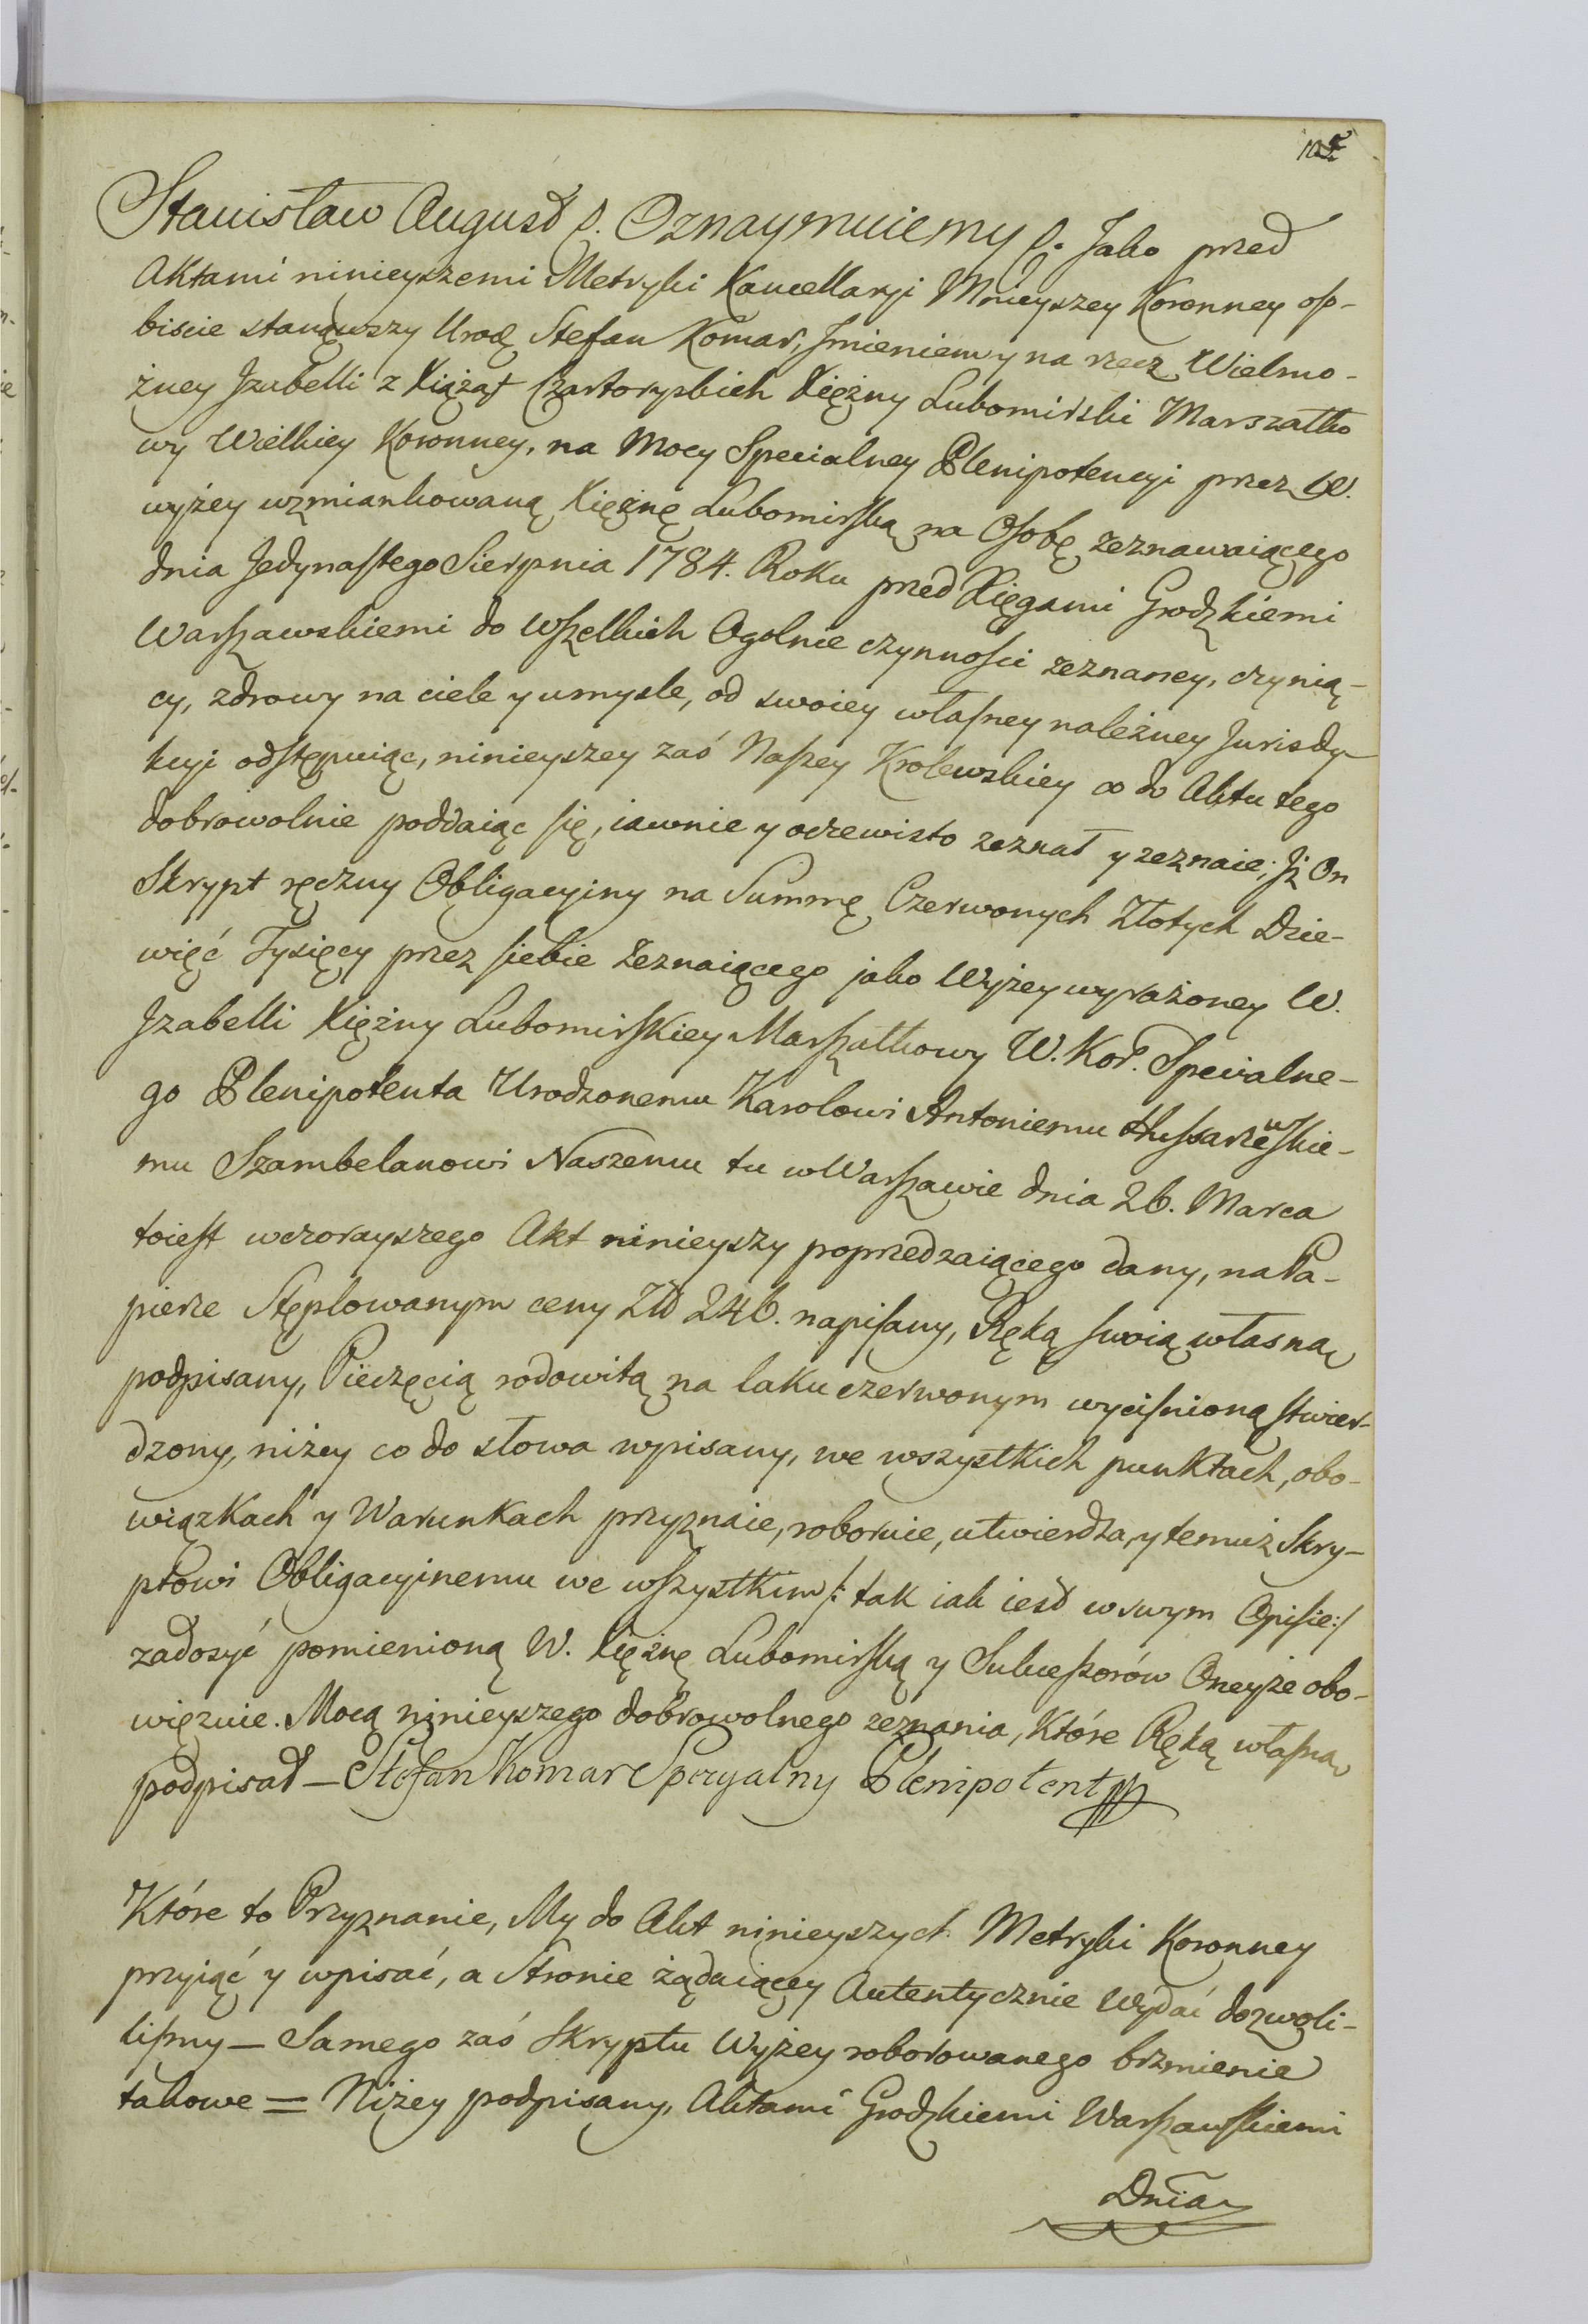 Stanisław August p. Oznaymuiemy p. Jako przed
Aktami ninieyszemi Metryki Kancellaryi Mnieyszey Koronney oso-
biscie stanąwszy Urodz. Stefan Komar, Jmieniem y na rzecz Wielmo-
żney Jzabelli z Xiążąt Czartoryskich Xiężny Lubomirski Marszałko
wy Wielkiey Koronney, na Mocy Specialney Plenipotencyi przez W.
wyżey wzmiankowaną Xiężnę Lubomirską na Osobę zeznawaiącego
dnia Jedynastego Sierpnia 1784. Roku przed Xięgami Grodzkiemi
Warszawskiemi do wszelkich Ogolnie czynności zeznaney, czynią-
cy, zdrowy na ciele y umysle, od swoiey własney należney Jurisdy-
kcyi odstępuiąc, ninieyszey zaś Naszey Krolewskiey co do Aktu tego
dobrowolnie poddaiąc się, iawnie y oczewisto zeznał y zeznaie; Jż On
Skrypt ręczny Obligacyiny na Summę Czerwonych Złotych Dzie-
więć Tysięcy przez siebie Zeznaiącego jako Wyżey wyrażoney W.
Jzabelli Xiężny Lubomirskiey Marszałkowy W. Kor. Specialne-
go Plenipotenta Urodzonemu Karolowi Antoniemu Hussarzewskie-
mu Szambelanowi Naszemu tu w Warszawie dnia 26. Marca
toiest wczorayszego Akt ninieyszy poprzedzaiącego dany, na Pa-
pierze Stęplowanym ceny Zł 246. napisany, Ręką swoią własną
podpisany, Pieczęcią rodowitą na laku czerwonym wycisnioną stwier-
dzony, niżey co do słowa wpisany, we wszystkich punktach, obo-
wiązkach y Warunkach przyznaie, roboruie, utwierdza, y temuż Skry-
ptowi Obligacyinemu we wszystkim /: tak iak iest w swym Opisie :/
zadosyć pomienioną W. Xiężnę Lubomirską y Sukcessorów Oneyże obo-
więzuie. Mocą ninieyszego dobrowolnego zeznania, Które Ręką własną
podpisał — Stefan Komar Specyalny Plenipotent
Które to Przyznanie, My do Akt ninieyszych Metryki Koronney
przyiąć y wpisać, a Stronie żądaiącey Autentycznie Wydać dozwoli-
liśmy — Samego zaś Skryptu Wyżey roborowanego brzmienie
takowe = Niżey podpisany, Aktami Grodzkiemi Warszawskiemi
Dnia